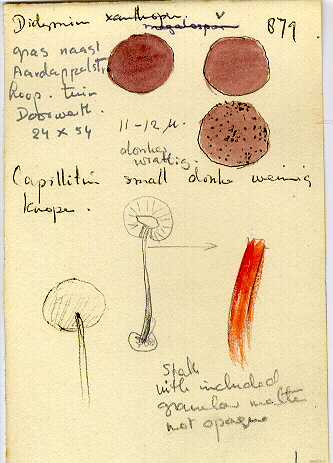 Didymium xanthopu.
megalospor
879
gras naast
Aardappelstr.
hoop. tuin
24 x 54
11-12 μ.
donker
wrattig.
Capillitium small donker weinig
knopen.
Stalk
with included
granular matter
not opaque